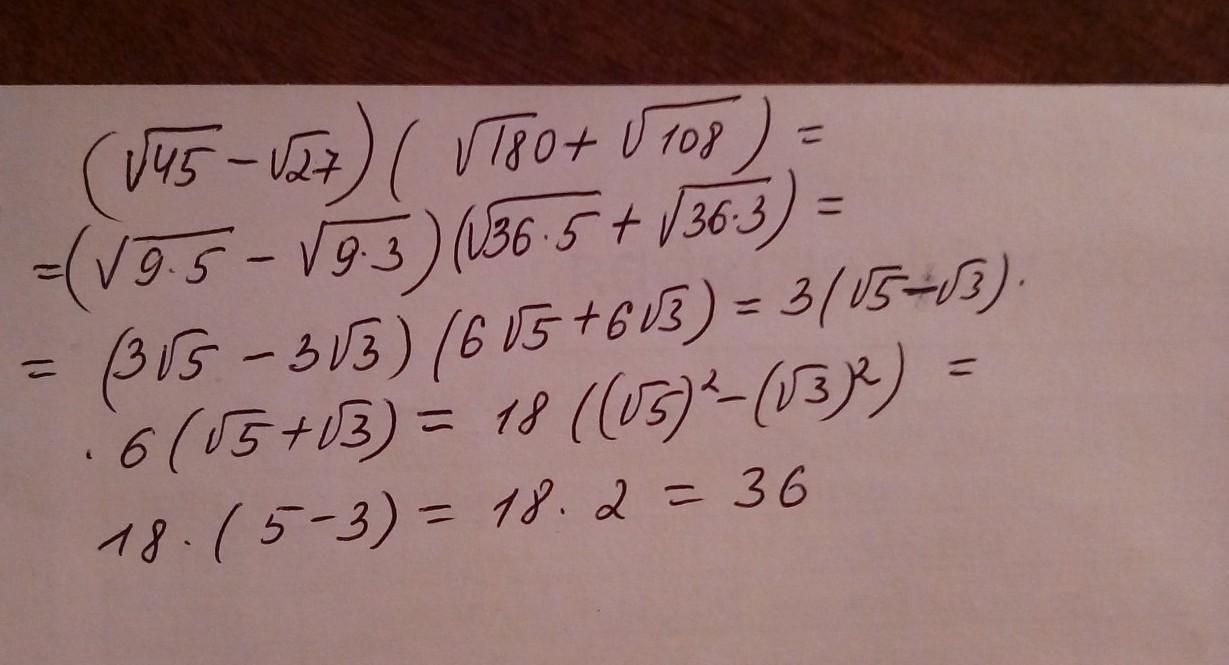 (√45 - √27)(√180 + √108) =
= (√9·5 - √9·3)(√36·5 + √36·3) =
= (3√5 - 3√3)(6√5 + 6√3) = 3(√5 - √3)·
·6(√5 + √3) = 18((√5)² - (√3)²) =
18·(5 - 3) = 18·2 = 36